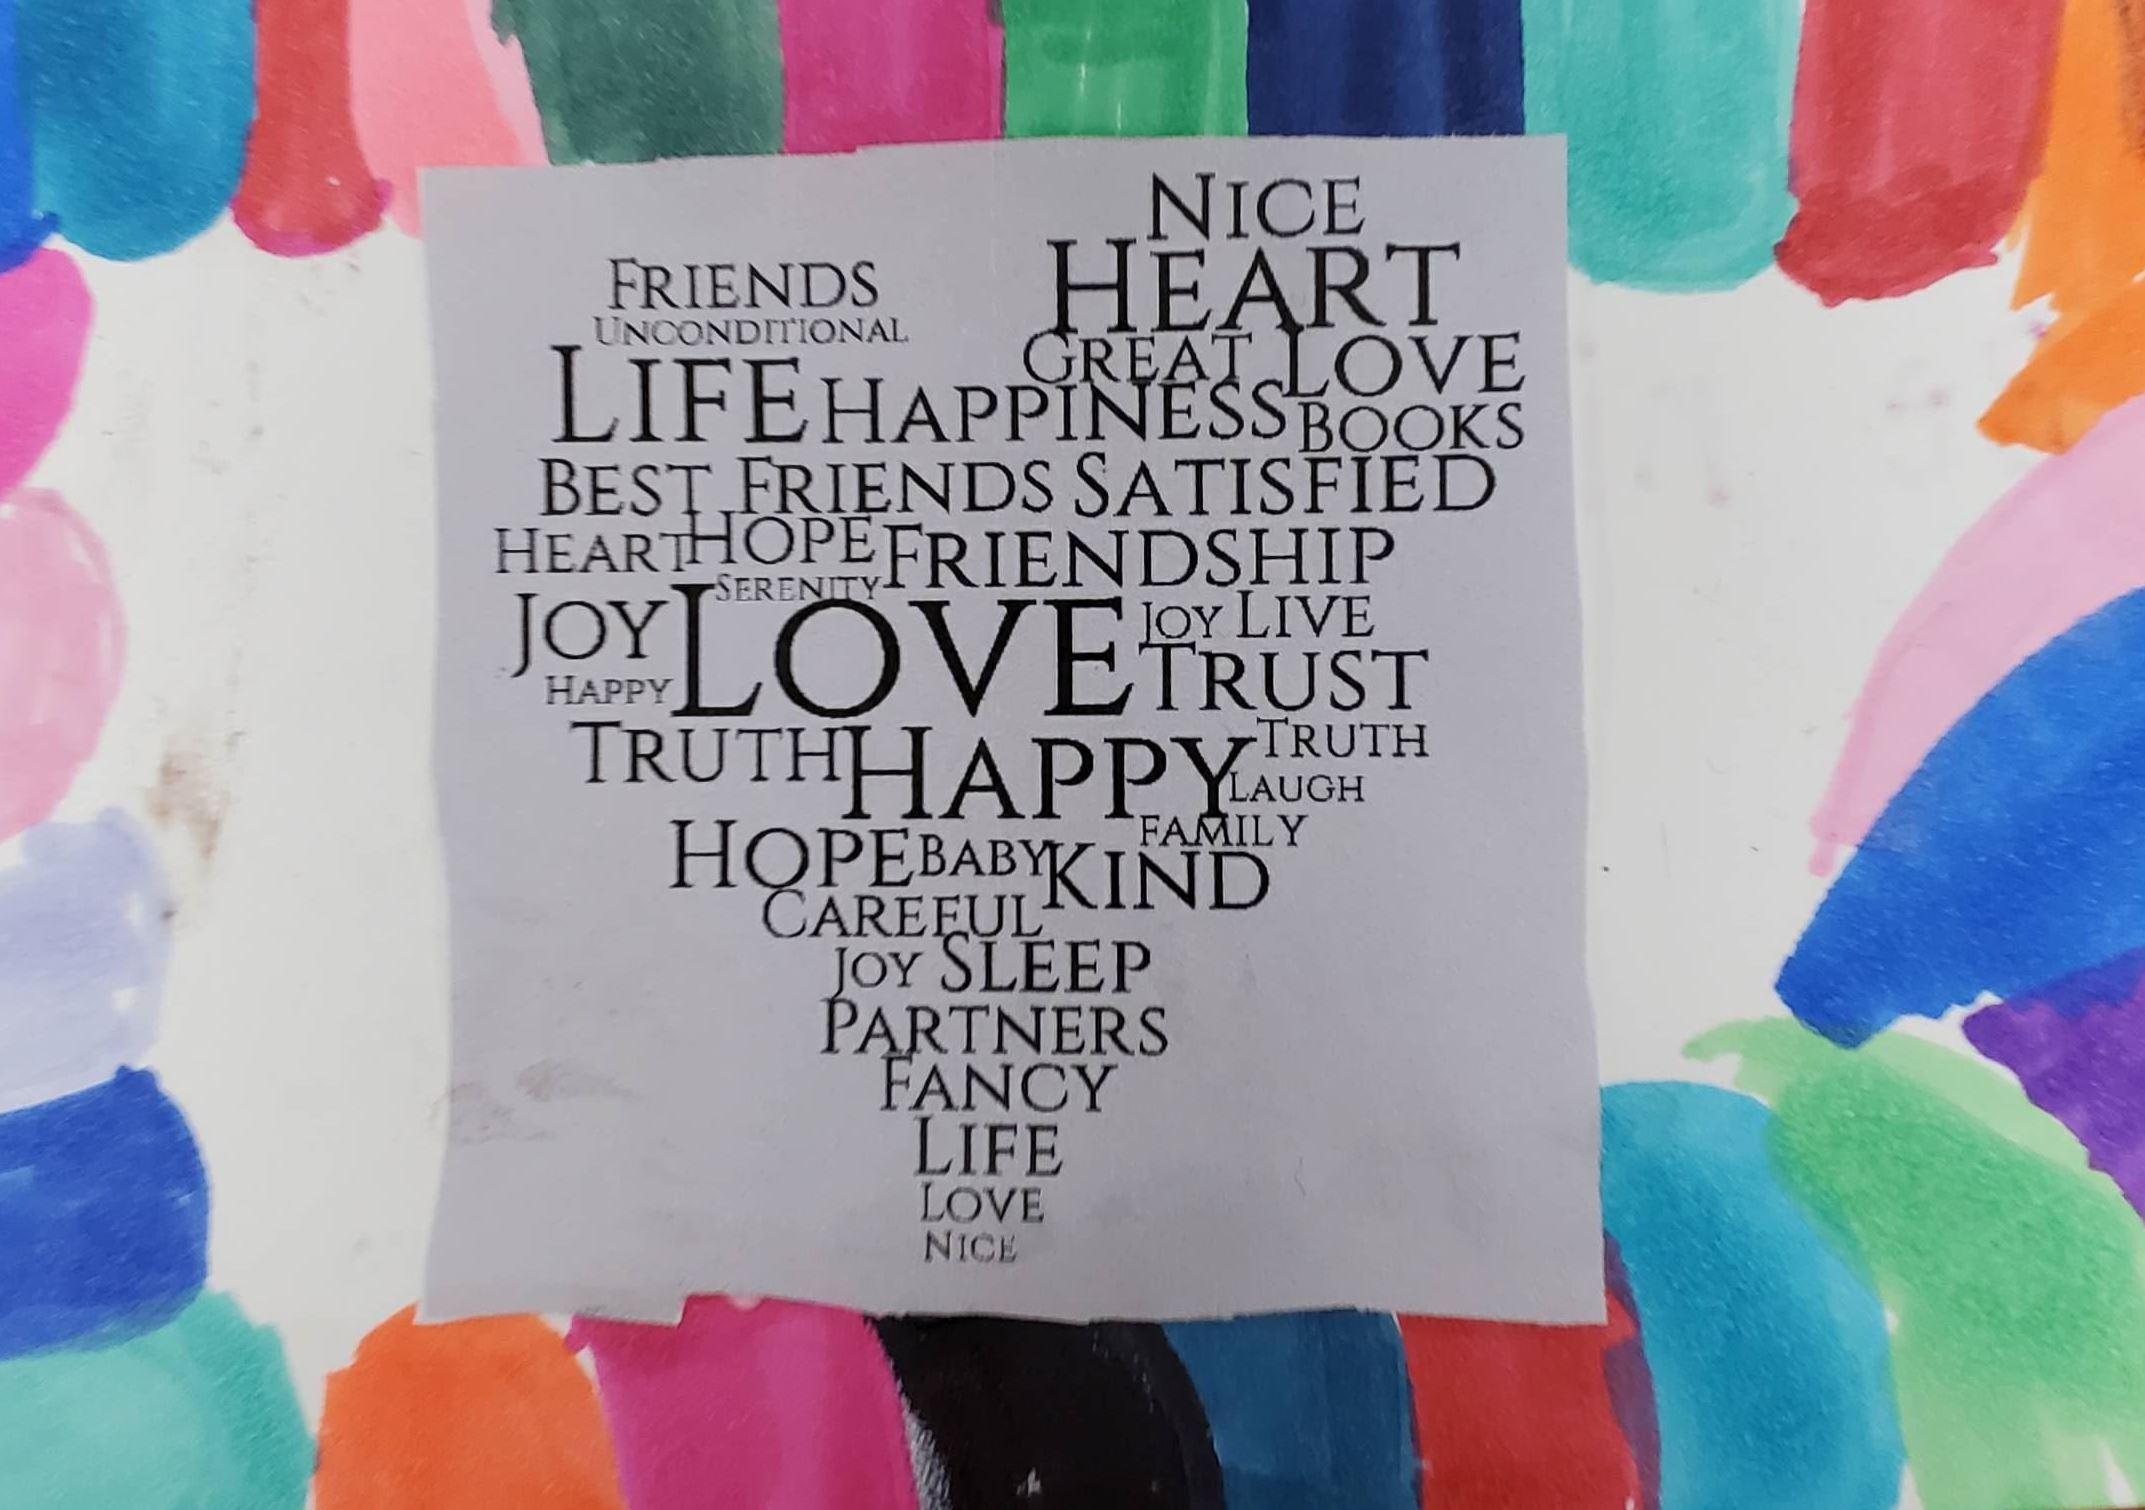 NICE
HEART
FRIENDS
UNCONDITIONAL
GREAT LOVE
LIFE HAPPINESS BOOKS
BEST FRIENDS SATISFIED
HEART HOPE FRIENDSHIP
SERENITY
JOY LOVE JOY LIVE
HAPPY TRUST
TRUTH HAPPY TRUTH
LAUGH
FAMILY
HOPE BABY KIND
CAREFUL
JOY SLEEP
PARTNERS
FANCY
LIFE
LOVE
NICE